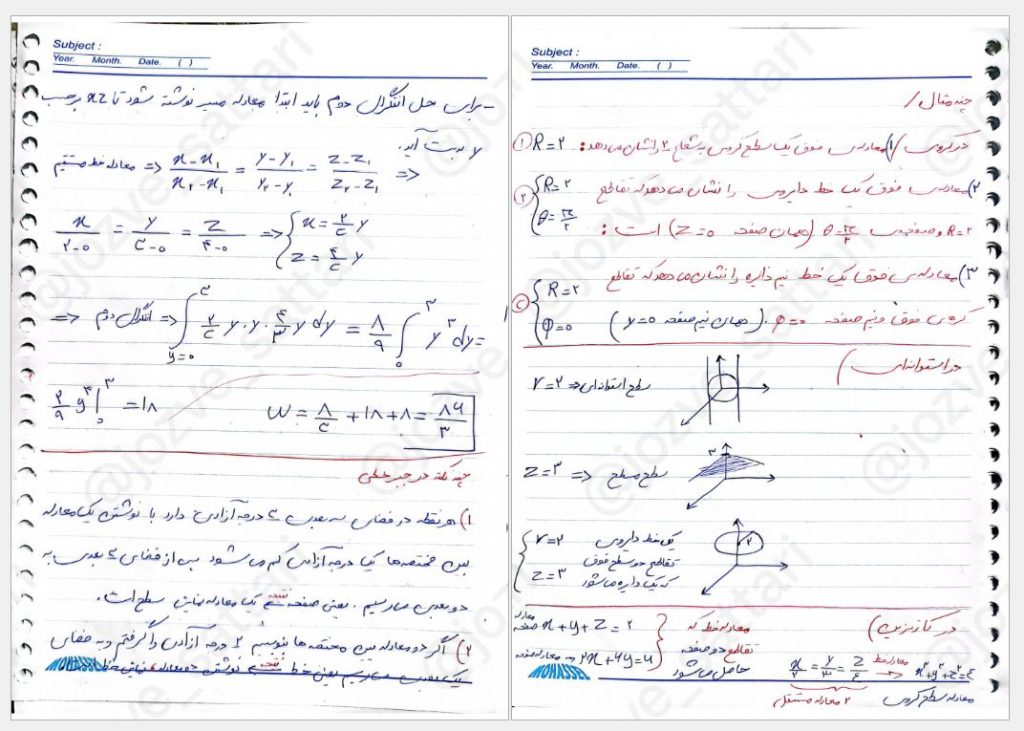 Subject :
Year. Month. Date. ( )
- برای حل انتگرال دوم باید ابتدا معادله مسیر نوشته شود تا xz برحسب
y بدست آید.
معادله خط مستقیم ⇒ (x-x₁)/(x₂-x₁) = (y-y₁)/(y₂-y₁) = (z-z₁)/(z₂-z₁) ⇒
x/(۲-۰) = y/(۳-۰) = z/(۴-۰) ⇒ { x = ۲/۳ y
z = ۴/۳ y
⇒ انتگرال دوم ⇒ ∫_{y=۰}^{۳} ۲/۳ y . y . ۴/۳ y dy = ۸/۹ ∫_۰^۳ y^۳ dy =
۲/۹ y^۴ |_۰^۳ = ۱۸ W = ۸/۳ + ۱۸ + ۸ = ۸۶/۳
چند نکته در جبر خطی
۱) هر نقطه در فضای سه بعدی ۳ درجه آزادی دارد با نوشتن یک معادله
بین مختصه‌ها یک درجه آزادی کم می‌شود پس از فضای ۳ بعدی به
دو بعدی می‌رسیم. یعنی صفحه نتیجه یک معادله یعنی سطح است.
۲) اگر دو معادله بین مختصه‌ها بنویسیم ۲ درجه آزادی را گرفتیم و به فضای
یک بعدی می‌رسیم یعنی خط نتیجه نوشتن دو معادله خط
MOHASSEL
Subject :
Year. Month. Date. ( )
چند مثال /
در کروی / ۱) معادله‌ی فوق یک سطح کروی به شعاع ۲ را نشان می‌دهد: R=۲ ①
۲) معادله‌ی فوق یک خط دایروی را نشان می‌دهد که تقاطع ② { R=۲
R=۲ و صفحه‌ی θ=π/۲ (همان صفحه z=۰) است : θ=π/۲
۳) معادله‌ی فوق یک خط نیم دایره را نشان می‌دهد که تقاطع ③ { R=۲
کره‌ی فوق و نیم صفحه φ=۰ . (همان نیم صفحه y=۰) φ=۰
در استوانه‌ای /
سطح استوانه‌ای ⇐ r=۲
سطح مسطح ⇐ z=۳
۳
یک خط دایروی { r=۲
تقاطع دو سطح فوق z=۳
که یک دایره می‌شود
۲
در کارتزین )
معادله خط که x+y+z=۲ معادله صفحه
تقاطع دو صفحه ۲x+۴y=۴ معادله صفحه
حاصل می‌شود
x/۲ = y/۳ = z/۴ معادله خط
۲ معادله مستقل
x²+y²+z²=۴
معادله سطح کروی
MOHASSEL
@jozve_sattari